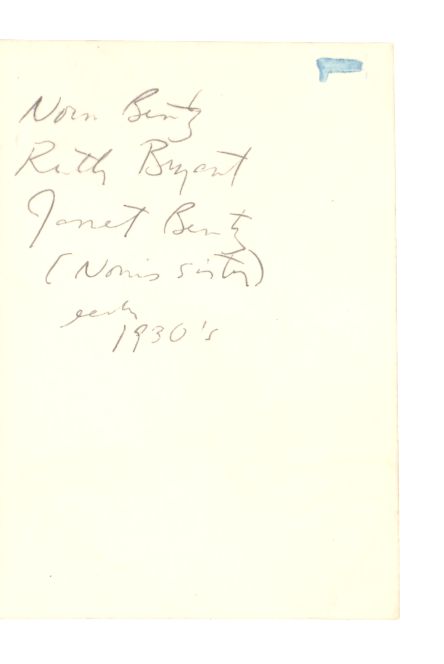 Norm Bentz
Ruth Bryant
Janet Bentz
(Norm's sister)
early
1930's